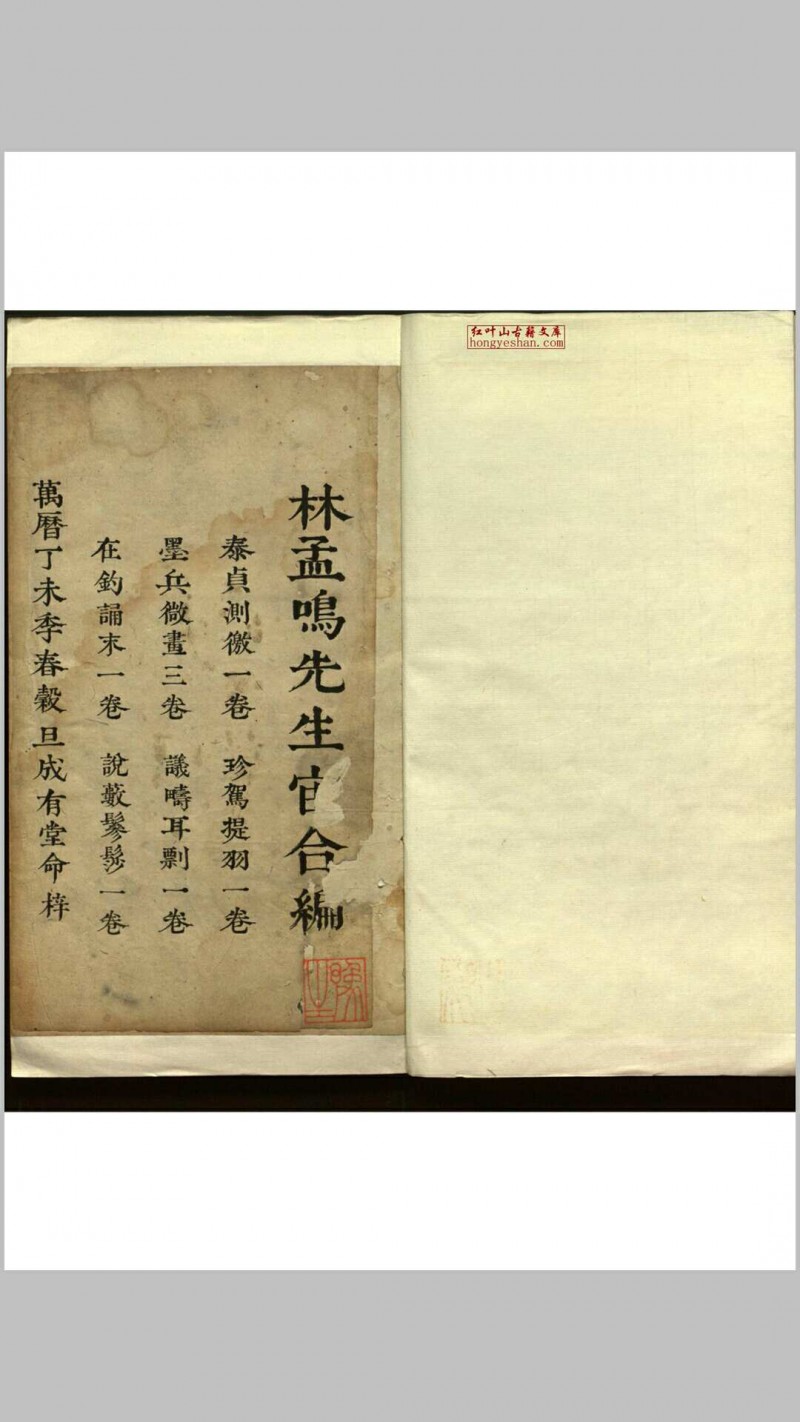 红叶山古籍文库
hongyeshan.com
林孟鳴先生合編
泰貞測徼一卷 珍駕提羽一卷
墨兵微畫三卷 議疇耳剽一卷
在鈞誦末一卷 說藪鬖髿一卷
萬曆丁未季春穀旦成有堂命梓